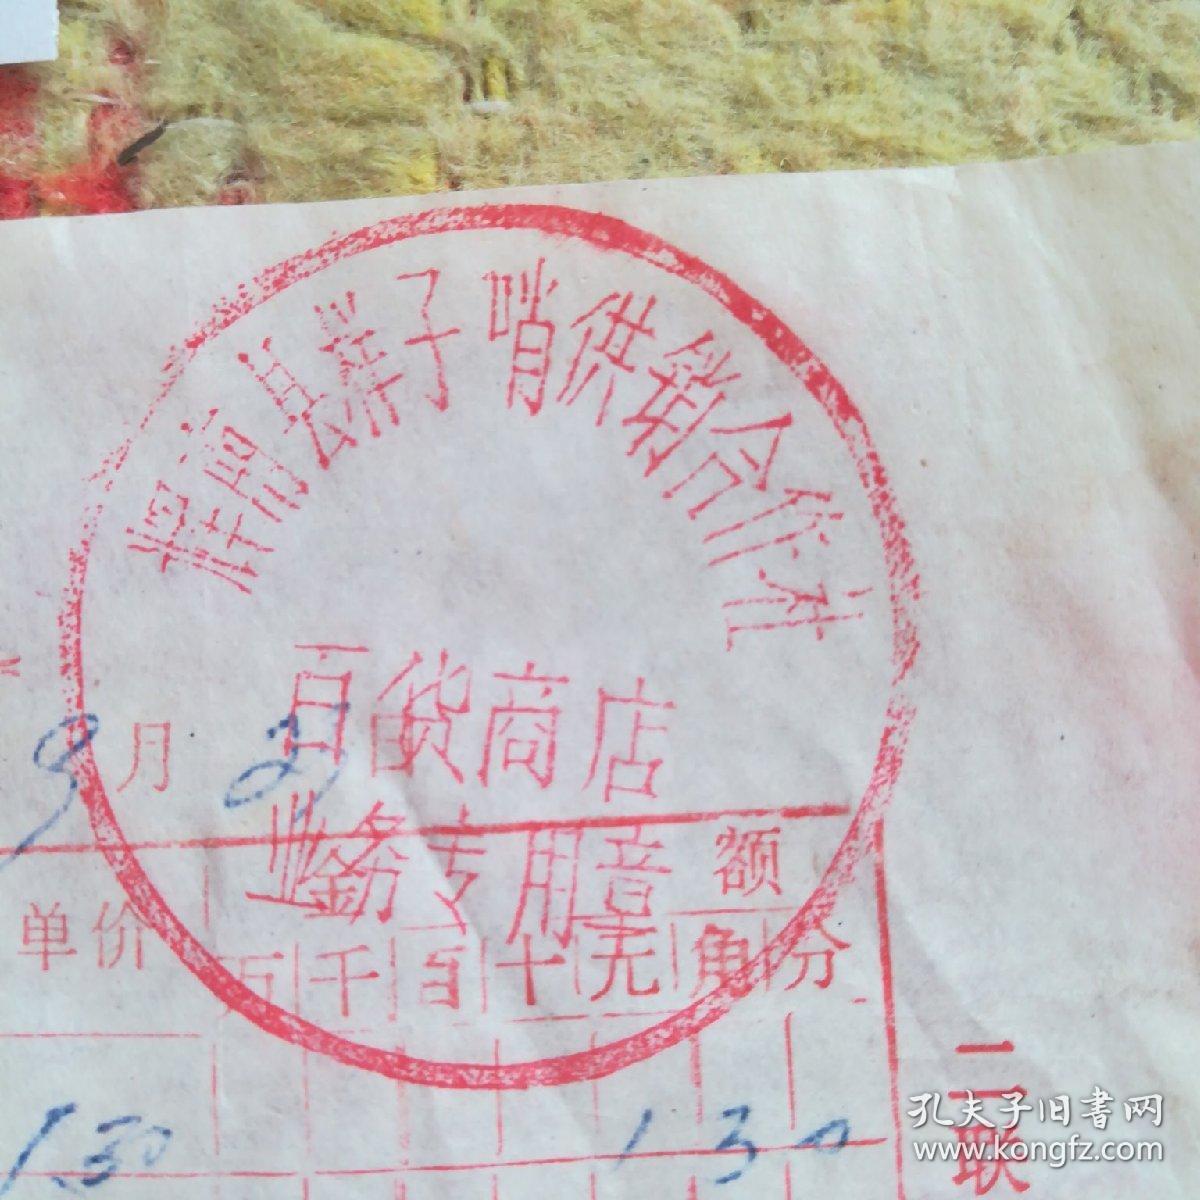 辉南县样子哨供销合作社
百货商店
业务专用章
9月
单价
金额
万千百十元角分
1.30
1 3 0
二联
孔夫子旧书网
www.kongfz.com